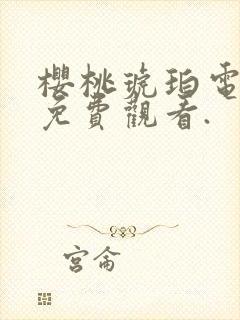 櫻桃琥珀電
免費觀看.
宮侖